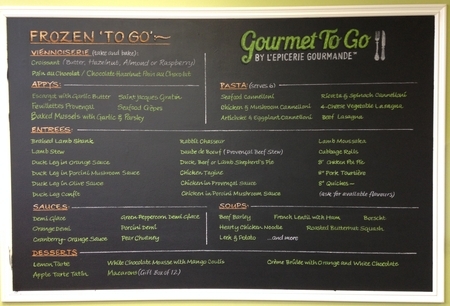 FROZEN 'TO GO'~
Gourmet To Go
BY L'EPICERIE GOURMANDE™
VIENNOISERIE (take and bake):
Croissant (Butter, Hazelnut, Almond or Raspberry)
Pain au Chocolat / Chocolate Hazelnut Pain au Chocolat
APPY'S:
Escargot with Garlic Butter
Saint Jacques Gratin
Feuilletés Provençal
Seafood Crêpes
Baked Mussels with Garlic & Parsley
PASTA: (serves 6)
Seafood Cannelloni
Ricotta & Spinach Cannelloni
Chicken & Mushroom Cannelloni
4-Cheese Vegetable Lasagna
Artichoke & Eggplant Cannelloni
Beef Lasagna
ENTRÉES:
Braised Lamb Shank
Rabbit Chasseur
Lamb Moussaka
Lamb Stew
Daube de Boeuf (Provençal Beef Stew)
Cabbage Rolls
Duck Leg in Orange Sauce
Duck, Beef, or Lamb Shepherd's Pie
9" Chicken Pot Pie
Duck Leg in Porcini Mushroom Sauce
Chicken Tagine
9" Pork Tourtière
Duck Leg in Olive Sauce
Chicken in Provençal Sauce
9" Quiches~
Duck Leg Confit
Chicken in Porcini Mushroom Sauce
(ask for available flavours)
SAUCES:
Demi Glace
Green Peppercorn Demi Glace
Orange Demi
Porcini Demi
Cranberry-Orange Sauce
Pear Chutney
SOUPS:
Beef Barley
French Lentil with Ham
Borscht
Hearty Chicken Noodle
Roasted Butternut Squash
Leek & Potato
...and more
DESSERTS
Lemon Tarte
White Chocolate Mousse with Mango Coulis
Crème Brûlée with Orange and White Chocolate
Apple Tarte Tatin
Macarons (Gift Box of 12)